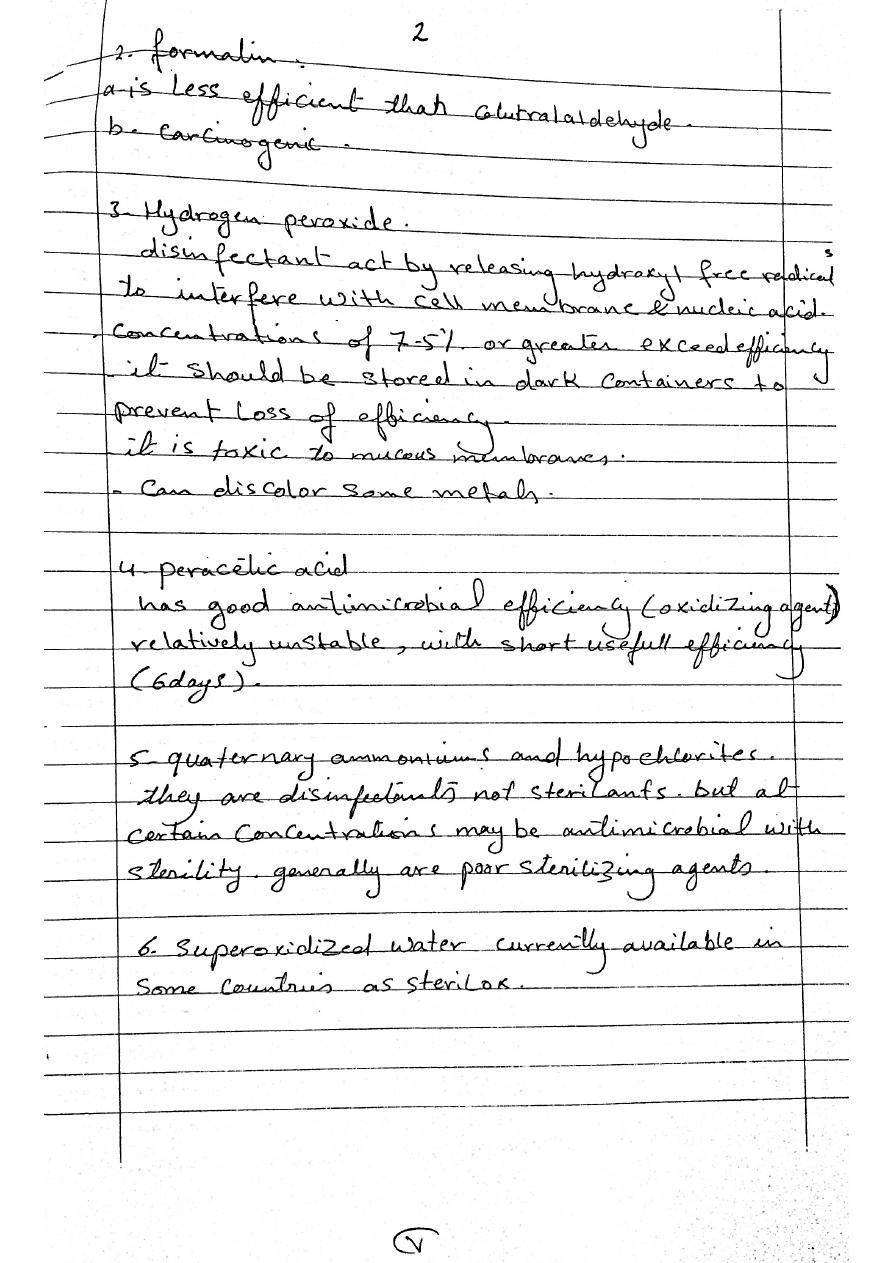 2
2. formalin.
a- is Less efficient than Glutralaldehyde.
b- Carcinogenic.
3- Hydrogen peroxide.
disinfectant act by releasing hydroxyl free radicals
to interfere with cell membrane & nucleic acid.
- Concentrations of 7-5% or greater exceed efficiency
- it should be stored in dark Containers to
prevent Loss of efficiency.
it is toxic to mucous membranes.
- Can discolor some metals.
4- peracetic acid
has good antimicrobial efficiency (oxidizing agent)
relatively unstable, with short usefull efficiency
(6days).
5- quaternary ammoniums and hypochlorites.
they are disinfectants not sterilants. but at
certain Concentrations may be antimicrobial with
sterility. generally are poor sterilizing agents.
6- Superoxidized water currently available in
Some Countries as sterilox.
٧